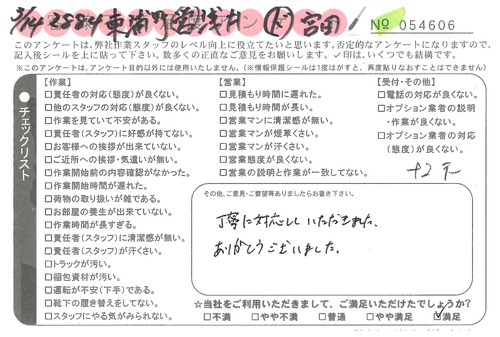 3/14 2884 東浦町 浅井 ド 宮田
No 054606
このアンケートは、弊社作業スタッフのレベル向上に役立てたいと思います。否定的なアンケートになりますので、
記入後シールを上に貼って下さい。数多くの正直なご意見をお願いします。✓印は、いくつでも結構です。
※このアンケートは、アンケート目的以外には使用いたしません。(※情報保護シールは1度はがすと、再度貼りなおすことはできません)
●チェックリスト
【作業】
□責任者の対応(態度)が良くない。
□他のスタッフの対応(態度)が良くない。
□作業を見ていて不安がある。
□責任者(スタッフ)に好感が持てない。
□お客様への挨拶が出来ていない。
□ご近所への挨拶・気遣いが無い。
□作業開始前の内容確認がなかった。
□作業開始時間が遅れた。
□荷物の取り扱いが雑である。
□お部屋の養生が出来ていない。
□作業時間が長すぎる。
□責任者(スタッフ)に清潔感が無い。
□責任者(スタッフ)が汗くさい。
□トラックが汚い。
□梱包資材が汚い。
□運転が不安(下手)である。
□靴下の履き替えをしてない。
□スタッフにやる気がみられない。
【営業】
□見積もり時間に遅れた。
□見積もり時間が長い。
□営業マンに清潔感が無い。
□営業マンが煙草くさい。
□営業マンが汗くさい。
□営業態度が良くない。
□営業の説明と作業が一致してない。
【受付・その他】
□電話の対応が良くない。
□オプション業者の説明
・作業が良くない。
□オプション業者の対応
(態度)が良くない。
その他、ご意見・ご要望等ありましたらお書き下さい。
丁寧に対応していただきました。
ありがとうございました。
☆当社をご利用いただきまして、ご満足いただけたでしょうか?
□不満 □やや不満 □普通 □やや満足 ☑満足